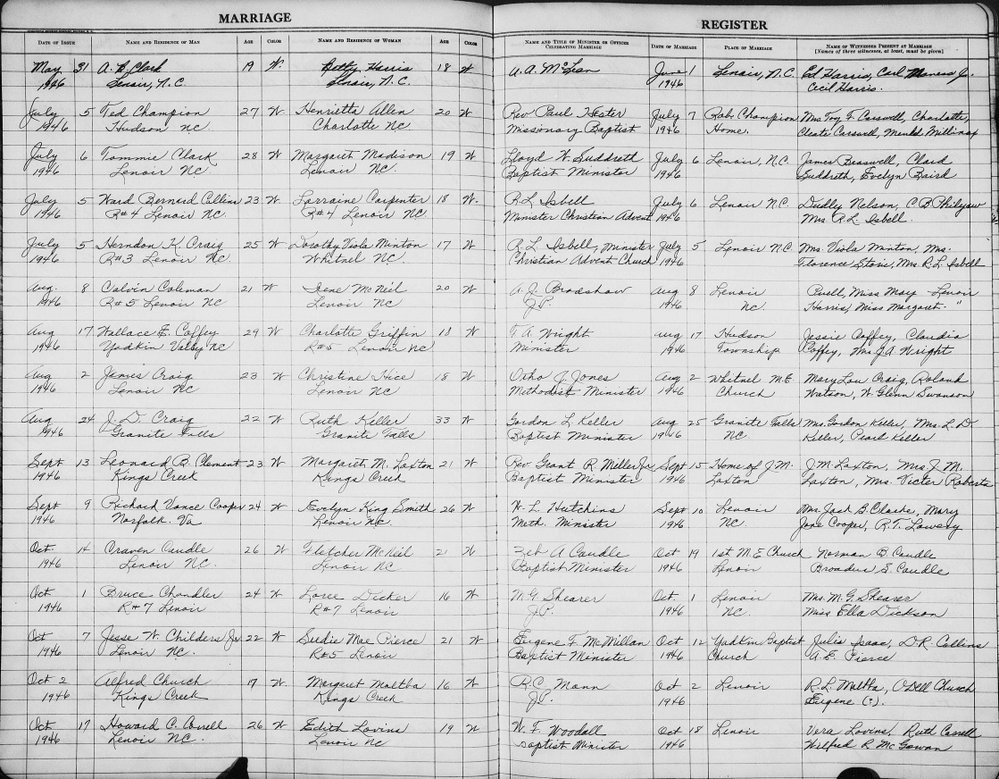 MARRIAGE
REGISTER
DATE OF ISSUE NAME AND RESIDENCE OF MAN AGE COLOR NAME AND RESIDENCE OF WOMAN AGE COLOR NAME AND TITLE OF MINISTER OR OFFICER CELEBRATING MARRIAGE DATE OF MARRIAGE PLACE OF MARRIAGE NAME OF WITNESSES PRESENT AT MARRIAGE
[Names of three witnesses, at least, must be given]
May 31 A. B. Clark 19 W. Betty Harris 18 W A. A. McLean June 1 Lenoir, N.C. Ed Harris, Carl Jr.
1946 Lenoir, N.C. Lenoir, N.C. 1946 Cecil Harris.
July 5 Ted Champion 27 W Henrietta Allen 20 W Rev Paul Hester July 7 Rob Champion Mrs Toy F. Carswell, Charlotte,
1946 Hudson NC. Charlotte NC. Missionary Baptist 1946 Home. Carswell,
July 6 Tommie Clark 28 W Margaret Madison 19 W Lloyd W Suddreth July 6 Lenoir, N.C. James Braswell, Claud
1946 Lenoir NC Lenoir NC. Baptist Minister 1946 Suddreth, Evelyn Baird
July 5 Ward Bernard Collins 23 W Lorraine Carpenter 18 W. R L Isbell July 6 Lenoir NC Dudley Nelson, C B Philyaw
1946 R#4 Lenoir NC. R#4 Lenoir NC Minister Christian Advent 1946 Mrs R. L. Isbell.
July 5 Herndon K Craig 25 W Dorothy Viola Minton 17 W R L Isbell, Minister July 5 Lenoir NC Mrs. Viola Minton, Mrs.
1946 R#3 Lenoir NC. Whitnel NC. Christian Advent Church 1946 Florence Mrs. R L Isbell
Aug. 8 Calvin Coleman 21 W Irene McNeil 20 W A. J. Bradshaw Aug 8 Lenoir Puett, Miss May - Lenoir
1946 R#5 Lenoir NC Lenoir NC J.P. 1946 NC. Harris, Miss Margaret. "
Aug 17 Wallace E. Coffey 29 W Charlotte Griffin 18 W T. A. Wright Aug 17 Hudson Jessie Coffey, Claudia
1946 Yadkin Valley NC R#5 Lenoir NC Minister 1946 Township Coffey, Mrs J A Wright
Aug 2 James Craig 23 W Christine Hice 18 W Otho J. Jones Aug 2 Whitnel M E Mary Lou Craig, Roland
1946 Lenoir NC Lenoir NC Methodist Minister 1946 Church Watson, W Glenn Swanson
Aug 24 J. D. Craig 22 W Ruth Keller 33 W Gordon L Keller Aug 25 Granite Falls Mrs. Gordon Keller, Mrs. L D
1946 Granite Falls Granite Falls Baptist Minister 1946 NC Keller, Pearl Keller
Sept 13 Leonard B. Clement 23 W Margaret M. Laxton 21 W Rev Grant R Miller Jr. Sept 15 Home of J. M. J. M Laxton, Mrs. J. M.
1946 Kings Creek Kings Creek Baptist Minister 1946 Laxton Laxton, Mrs. Victor Roberts
Sept 9 Richard Vance Cooper 24 W Evelyn King Smith 26 W H. L. Hutchins Sept 10 Lenoir Mrs. Jack B. Clarke, Mary
1946 Norfolk Va Lenoir NC. Meth. Minister 1946 NC. Jane Cooper, R. T. Lowery
Oct. 14 Craven Caudle 26 W Fletcher McNeil 21 W Zeb A Caudle Oct 19 1st M E Church Norman B. Caudle
1946 Lenoir NC. Lenoir NC Baptist Minister 1946 Lenoir Broadus S. Caudle
Oct 1 Bruce Chandler 24 W Decker 16 W M. G. Shearer Oct 1 Lenoir Mrs. M. G. Shearer
1946 R#7 Lenoir R#7 Lenoir J.P. 1946 NC. Miss Ella Dickson
Oct 7 Jesse W. Childers Jr 22 W Sudie Mae Pierce 21 W Eugene F. McMillan Oct 12 Yadkin Baptist Julia Isaac, D. R. Collins
1946 Lenoir NC. R#5 Lenoir Baptist Minister 1946 Church A E. Pierce
Oct 2 Alfred Church 17 W Margaret Maltba 16 W R. C. Mann Oct 2 Lenoir R. L. Maltba, O'Dell Church
1946 Kings Creek Kings Creek J.P. 1946 Eugene (?).
Oct 17 Howard C. 26 W Edith Lovins 19 W W. F. Woodall Oct 18 Lenoir Vera Lovins, Ruth
1946 Lenoir NC. Lenoir NC Baptist Minister 1946 Wilfred R. McGowan